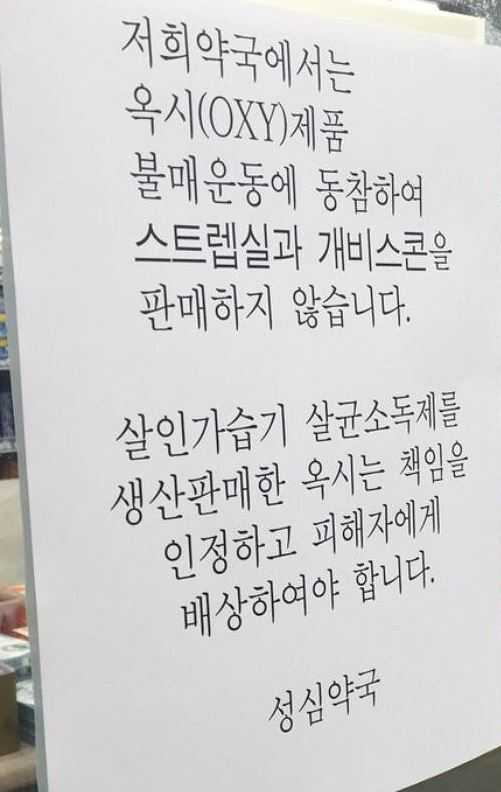 저희약국에서는
옥시(OXY)제품
불매운동에 동참하여
스트렙실과 개비스콘을
판매하지 않습니다.
살인가습기 살균소독제를
생산판매한 옥시는 책임을
인정하고 피해자에게
배상하여야 합니다.
성심약국